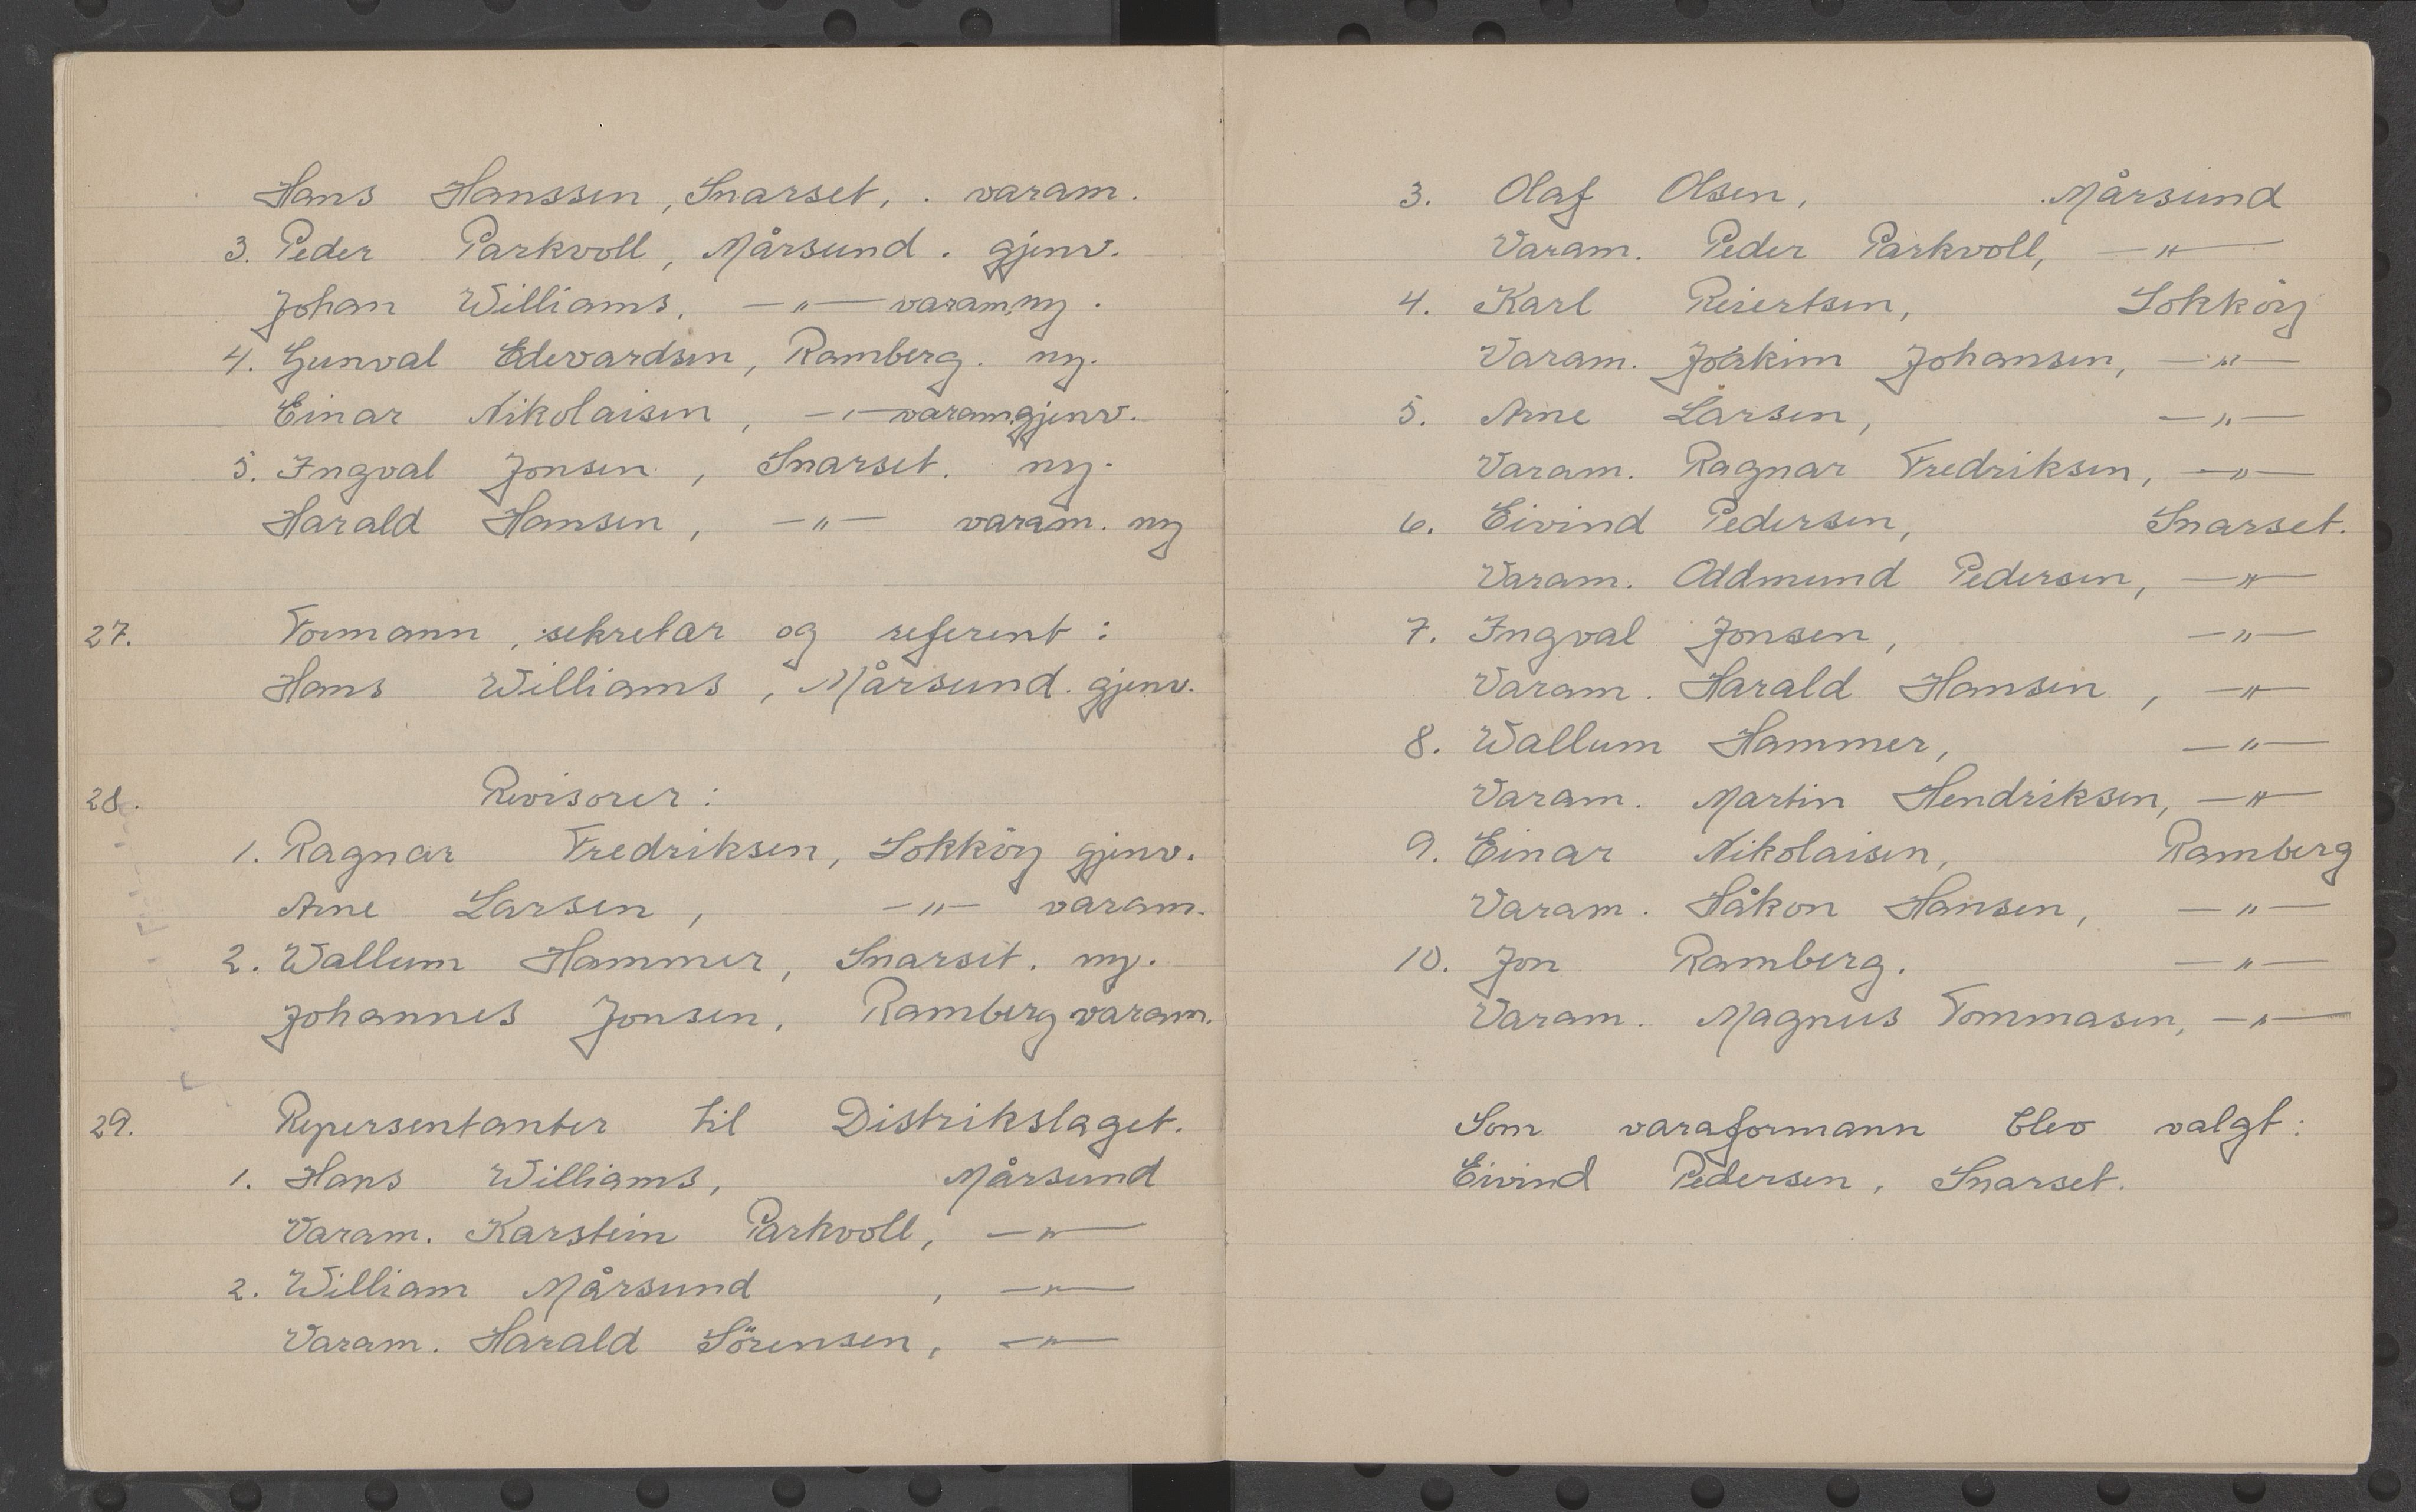 Hans Hanssen, Snarset, . varam.
3. Peder Parkvoll, Mårsund. gjenv.
Johan Williams, —"— varam. ny.
4. Gunval Edevardsen, Ramberg. ny.
Einar Nikolaisen, —"— varam. gjenv.
5. Ingval Jonsen, Snarset. ny.
Harald Hansen, —"— varam. ny
27. Formann, sekretær og referent:
Hans Williams, Mårsund. gjenv.
28. Revisorer:
1. Ragnar Fredriksen, Sokköy gjenv.
Arne Larsen, —"— varam.
2. Wallum Hammer, Snarset. ny.
Johannes Jonsen, Ramberg varam.
29. Repersentanter til Distrikslaget.
1. Hans Williams, Mårsund
Varam. Karstein Parkvoll, —"—
2. William Mårsund, —"—
Varam. Harald Sörensen, —"—
3. Olaf Olsen, Mårsund
Varam. Peder Parkvoll, —"—
4. Karl Reiertsen, Sokköy
Varam. Joakim Johansen, —"—
5. Arne Larsen, —"—
Varam. Ragnar Fredriksen, —"—
6. Eivind Pedersen, Snarset.
Varam. Oddmund Pedersen, —"—
7. Ingval Jonsen, —"—
Varam. Harald Hansen, —"—
8. Wallum Hammer, —"—
Varam. Martin Hendriksen, —"—
9. Einar Nikolaisen, Ramberg
Varam. Håkon Hansen, —"—
10. Jon Ramberg. —"—
Varam. Magnus Tommasen, —"—
Som varaformann blev valgt:
Eivind Pedersen, Snarset.